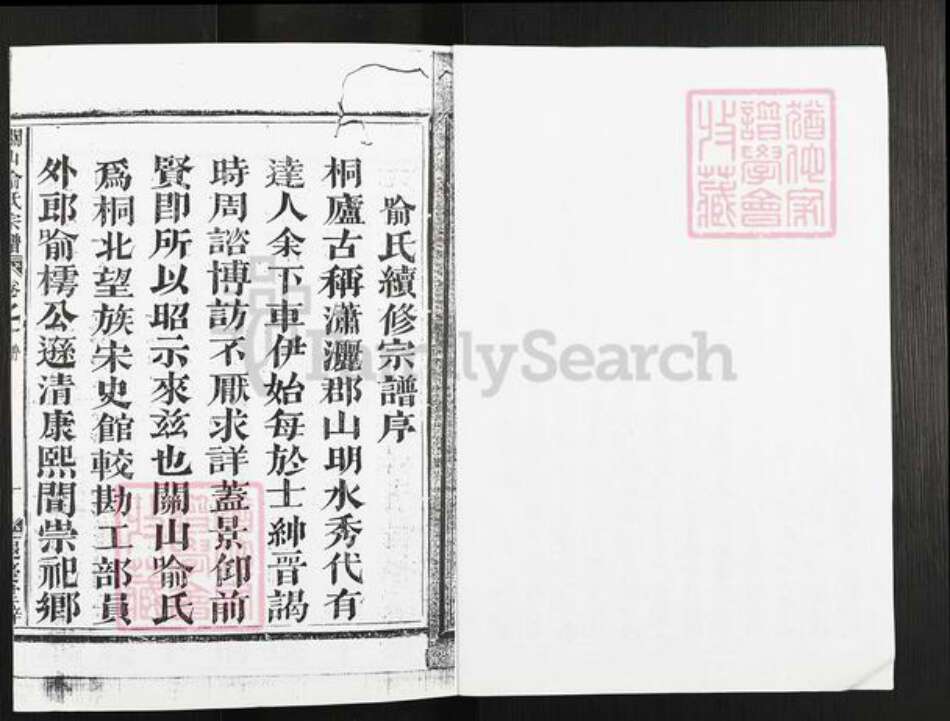 喻氏續修宗譜序
桐廬古稱瀟灑郡山明水秀代有
達人余下車伊始每於士紳晋謁
時周諮博訪不厭求詳蓋景仰前
賢即所以昭示來兹也關山喻氏
爲桐北望族宋史館較勘工部員
外郎喻樗公遜清康熙間崇祀鄉
關山喻氏宗譜 卷之一
譜學會
收藏
FamilySearch